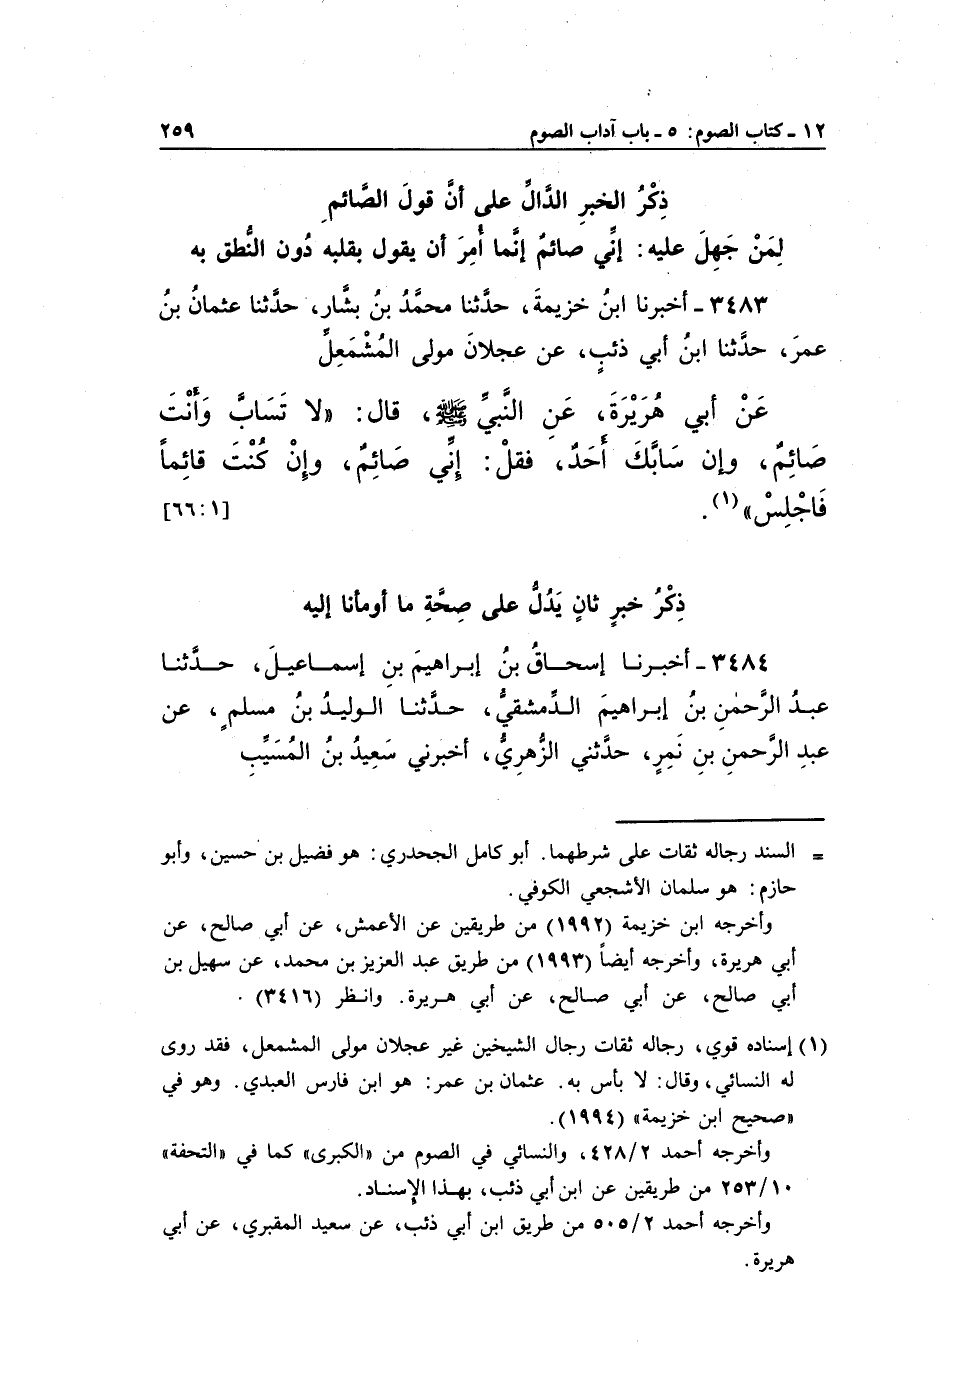 ١٢ ـ كتاب الصوم: ٥ ـ باب آداب الصوم ٢٥٩
ذِكْرُ الخبرِ الدَّالِّ على أنَّ قولَ الصَّائمِ
لِمَنْ جَهِلَ عليه: إنِّي صائمٌ إنَّما أُمِرَ أن يقول بقلبه دُون النُّطق به
٣٤٨٣ ـ أخبرنا ابنُ خزيمةَ، حدَّثنا محمَّدُ بنُ بشَّار، حدَّثنا عثمانُ بنُ
عمرَ، حدَّثنا ابنُ أبي ذئبٍ، عن عجلانَ مولى المُشْمَعِلِّ
عَنْ أبي هُرَيْرَةَ، عَنِ النَّبيِّ ﷺ، قال: «لا تَسَابَّ وَأَنْتَ
صَائِمٌ، وإن سَابَّكَ أَحَدٌ، فقلْ: إنِّي صَائِمٌ، وإِنْ كُنْتَ قائِماً
فَاجْلِسْ»(١). [٦٦:١]
ذِكْرُ خبرٍ ثانٍ يَدُلُّ على صِحَّةِ ما أومأنا إليه
٣٤٨٤ ـ أخبرنا إسحاقُ بنُ إبراهيمَ بنِ إسماعيلَ، حدَّثنا
عبدُ الرَّحمٰنِ بنُ إبراهيمَ الدِّمشقيُّ، حدَّثنا الوليدُ بنُ مسلمٍ، عن
عبدِ الرَّحمنِ بنِ نَمِرٍ، حدَّثني الزُّهرِيُّ، أخبرني سَعِيدُ بنُ المُسَيِّبِ
= السند رجاله ثقات على شرطهما. أبو كامل الجحدري: هو فضيل بن حسين، وأبو
حازم: هو سلمان الأشجعي الكوفي.
وأخرجه ابن خزيمة (١٩٩٢) من طريقين عن الأعمش، عن أبي صالح، عن
أبي هريرة، وأخرجه أيضاً (١٩٩٣) من طريق عبد العزيز بن محمد، عن سهيل بن
أبي صالح، عن أبي صالح، عن أبي هريرة. وانظر (٣٤١٦).
(١) إسناده قوي، رجاله ثقات رجال الشيخين غير عجلان مولى المشمعل، فقد روى
له النسائي، وقال: لا بأس به. عثمان بن عمر: هو ابن فارس العبدي. وهو في
«صحيح ابن خزيمة» (١٩٩٤).
وأخرجه أحمد ٤٢٨/٢، والنسائي في الصوم من «الكبرى» كما في «التحفة»
٢٥٣/١٠ من طريقين عن ابن أبي ذئب، بهذا الإسناد.
وأخرجه أحمد ٥٠٥/٢ من طريق ابن أبي ذئب، عن سعيد المقبري، عن أبي
هريرة.